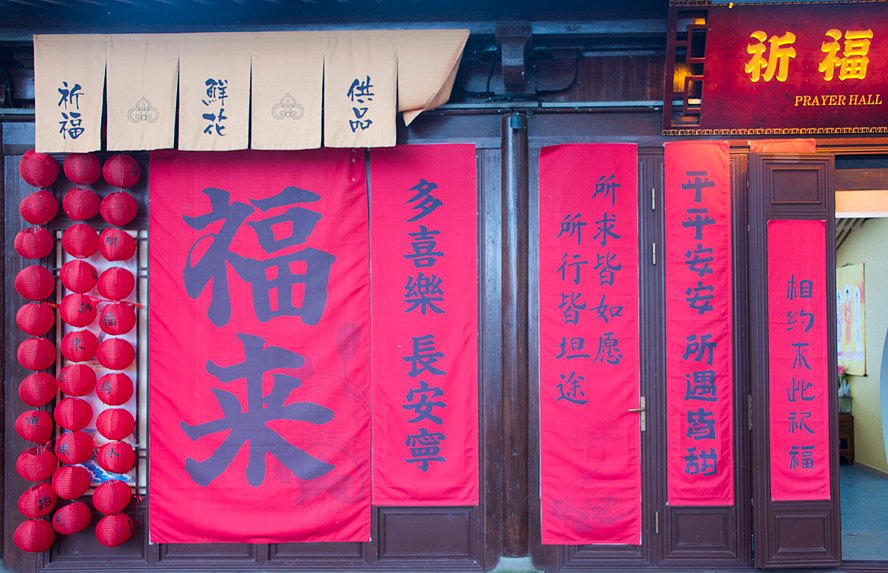 祈福
鮮花
供品
祈福
PRAYER HALL
福来
多喜樂 長安寧
所求皆如愿
所行皆坦途
平平安安 所遇皆甜
相约来此祈福